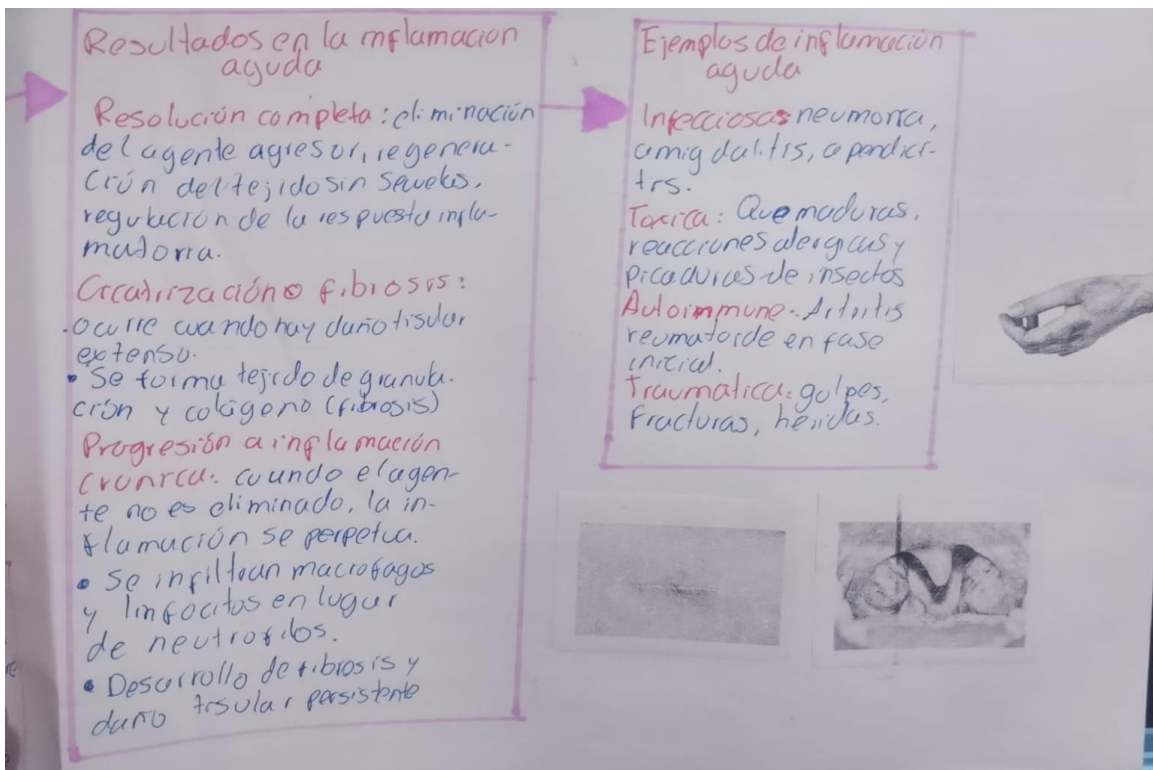 Resultados en la inflamacion
aguda
Resolución completa: eliminación
del agente agresor, regenera-
ción del tejido sin secuelas,
regulación de la respuesta infla-
matoria.
Cicatrización o fibrosis:
.ocurre cuando hay daño tisular
extenso.
• Se forma tejido de granula-
ción y colágeno (fibrosis)
Progresión a inflamación
cronica: cuando el agen-
te no es eliminado, la in-
flamación se perpetua.
• Se infiltran macrofagos
y linfocitos en lugar
de neutrofilos.
• Desarrollo de fibrosis y
daño tisular persistente
Ejemplos de inflamación
aguda
Infecciosas neumonia,
amigdalitis, apendici-
tis.
Toxica: Quemaduras,
reacciones alergicas y
picaduras de insectos
Autoimmune: Artritis
reumatoide en fase
inicial.
Traumatica: golpes,
fracturas, heridas.